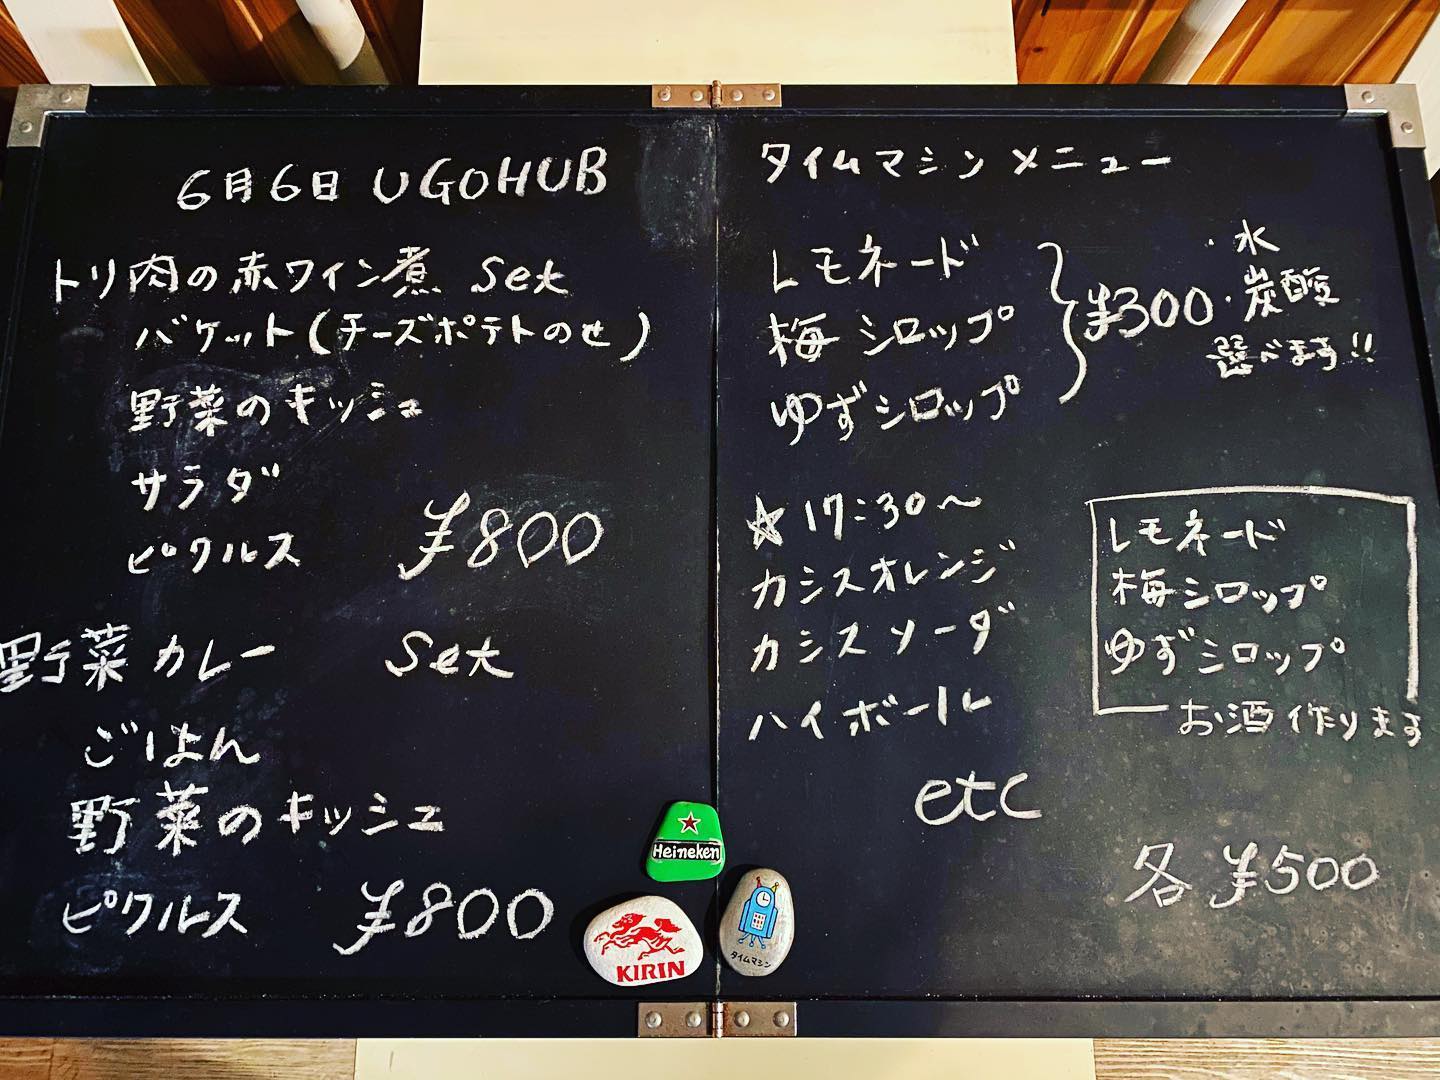 6月6日 UGOHUB
トリ肉の赤ワイン煮 Set
バケット(チーズポテトのせ)
野菜のキッシュ
サラダ
ピクルス ¥800
野菜カレー Set
ごはん
野菜のキッシュ
ピクルス ¥800
タイムマシンメニュー
レモネード
梅シロップ
ゆずシロップ
¥300
・水
・炭酸
選べます!!
☆17:30〜
カシスオレンジ
カシスソーダ
ハイボール
etc
レモネード
梅シロップ
ゆずシロップ
お酒作ります
各¥500
Heineken
KIRIN
タイムマシン